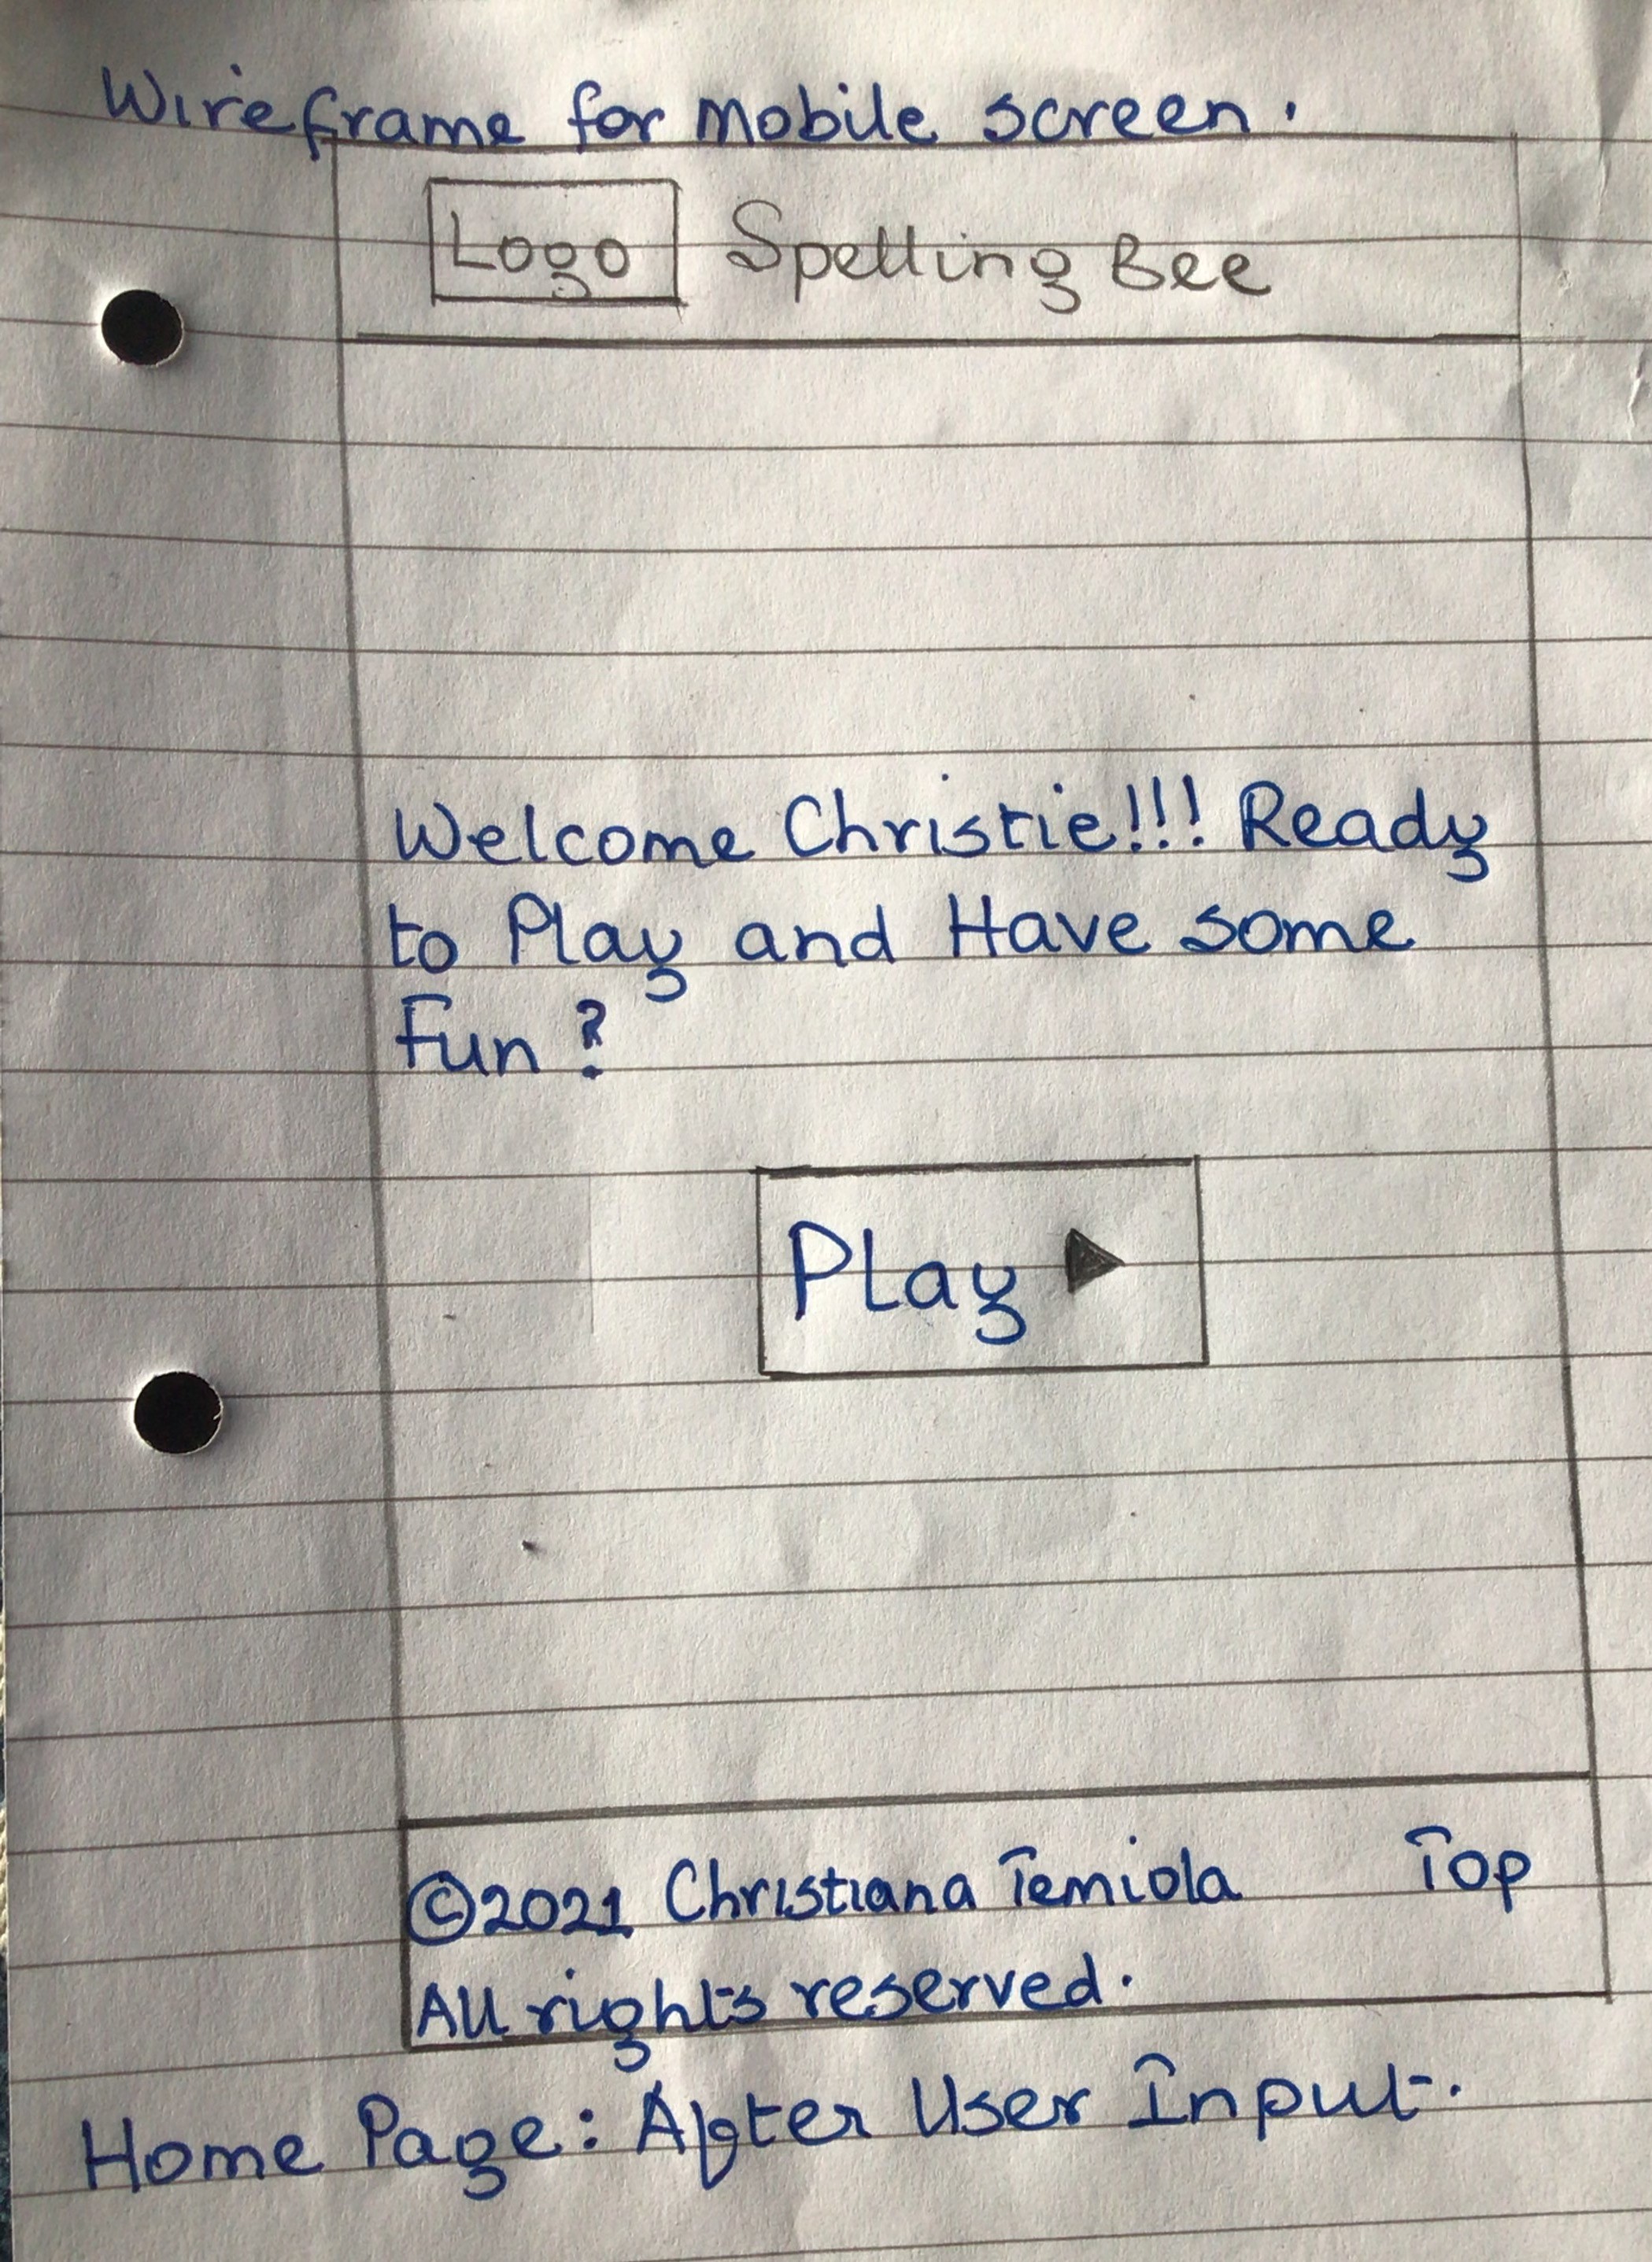 Wireframe for mobile screen.
Logo Spelling Bee
Welcome Christie!!! Ready
to Play and Have some
Fun ?
Play ▶
©2021 Christiana Temiola Top
All rights reserved.
Home Page: After User Input.